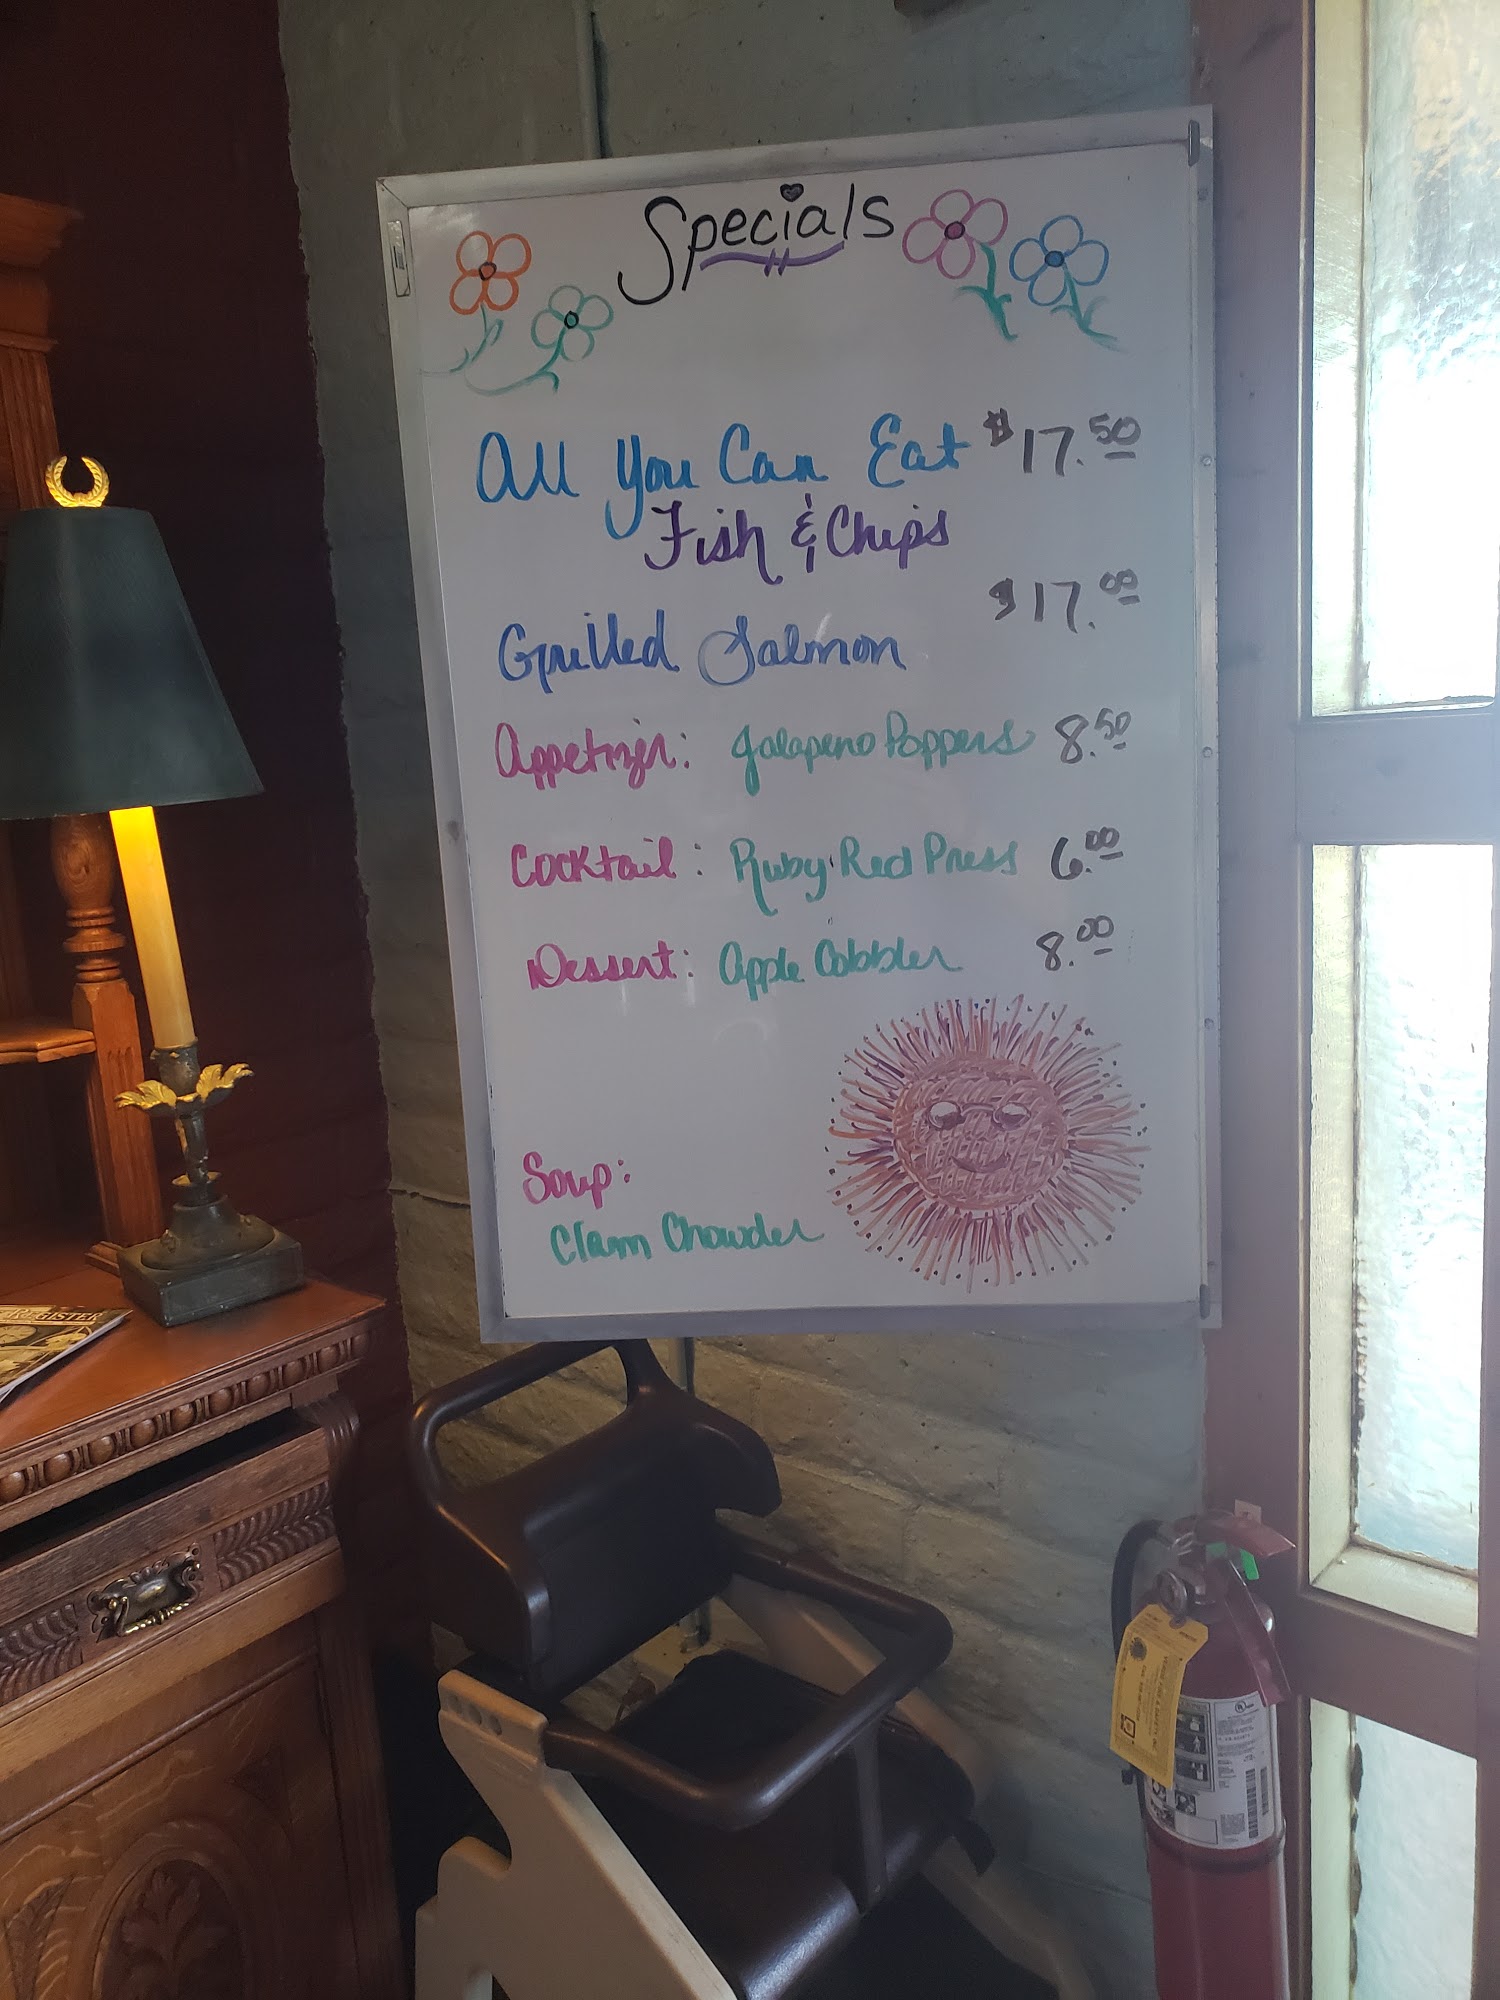 Specials
All You Can Eat $17.50
Fish & Chips
$17.00
Grilled Salmon
Appetizer: Jalapeno Poppers 8.50
Cocktail: Ruby Red Press 6.00
Dessert: Apple Cobbler 8.00
Soup:
Clam Chowder
REGISTER